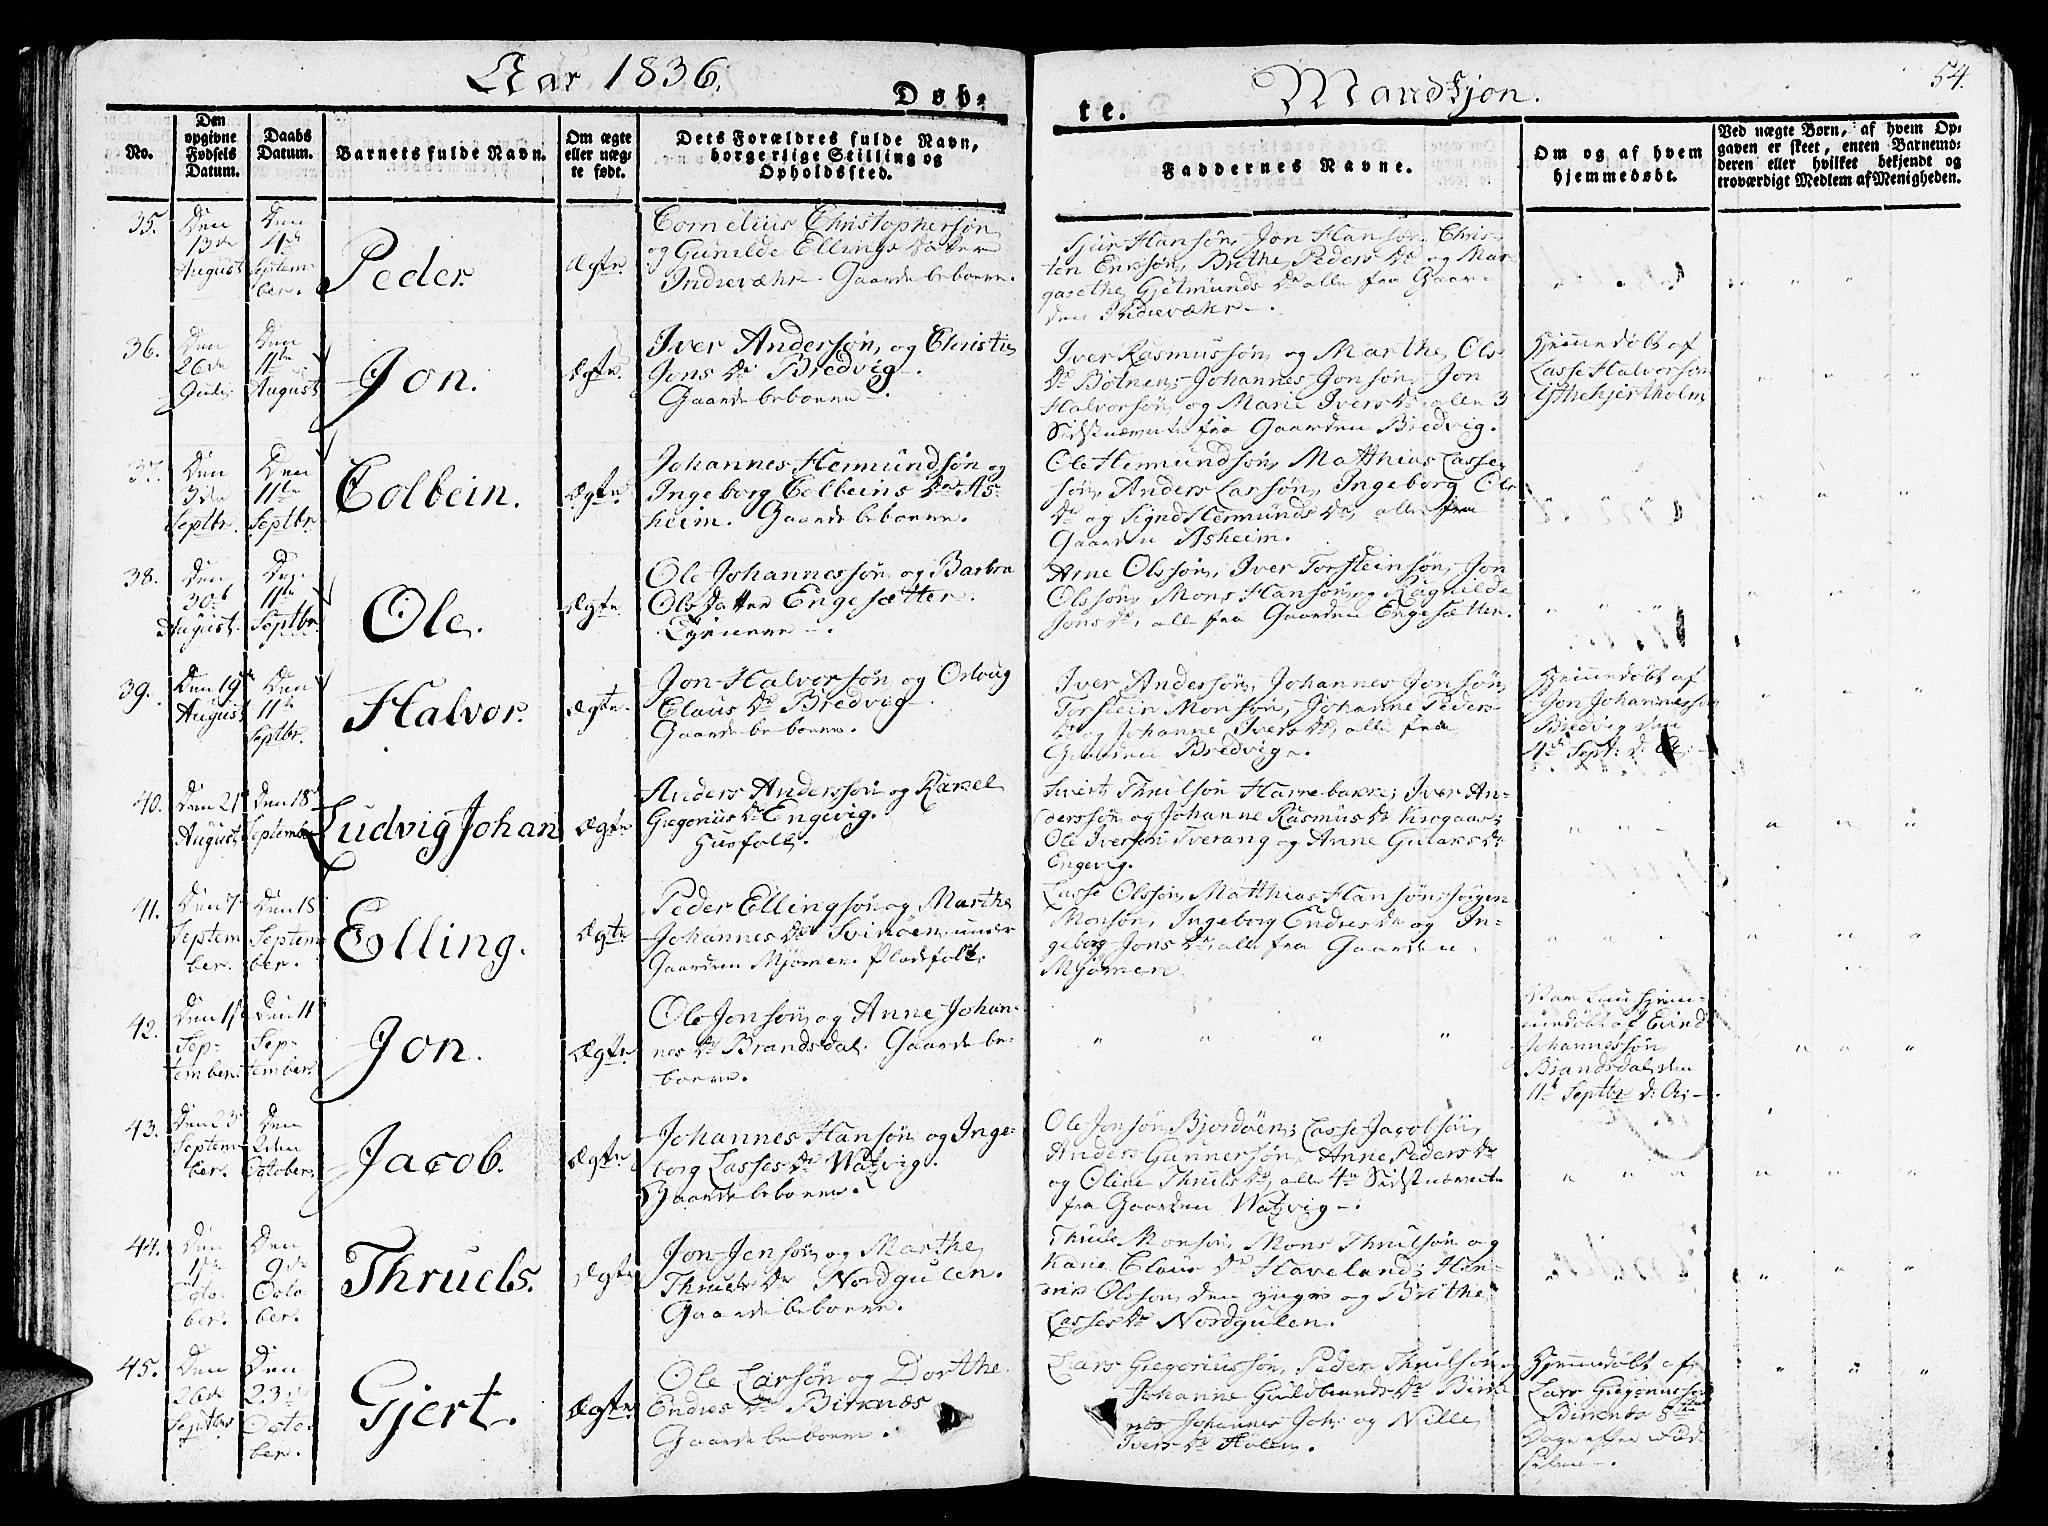 Aar 1836.
Døb-
te.
Mandkjøn.
54.
No.
Den opgivne Fødsels Datum.
Daabs Datum.
Barnets fulde Navn.
Om ægte eller uægte født.
Dets Forældres fulde Navn, borgerlige Stilling og Opholdssted.
Faddernes Navne.
Om og af hvem hjemmedøbt.
Ved uægte Børn, af hvem Opgaven er skeet, enten Barnemoderen eller hvilket bekjendt og troværdigt Medlem af Menigheden.
35.
Den 13de August
Den 4de September.
Peder.
Ægte.
Cornelius Christophersøn
og Gunilde Ellings Datter
Indreværk. Gaardebeboere.
Sjur Hansøn, Jon Hansøn, Chris-
ten Ericsøn, Brithe Peders Dr og Mar-
garethe Gjetmunds Dr alle fra Gaar-
den Indreværk.
36.
Den 26de Juli
Den 11te August
Jon.
Ægte.
Iver Andersøn, og Christie
Jons Dr Bredvig.
Gaardebeboere.
Iver Rasmussøn, og Marthe Ols
Dr Botnen, Johannes Jonsøn, Jon
Halvorsøn, og Marie Ivers Dr, alle 3
Sidstnævnte fra Gaarden Bredvig.
Hjemmedøbt af
Lasse Halvorsøn
Ythrekjertholm
37.
Den 3de Septbr.
Den 11te Septbr.
Colbein.
Ægte.
Johannes Hermundsøn og
Ingeborg Colbeins Dr As-
heim. Gaardebeboere.
Ole Hermundsøn, Matthias Lasse-
søn, Anders Larsøn, Ingeborg Ols
Dr og Signe Hermunds Dr, alle fra
Gaarden Asheim.
38.
Den 30te August.
Den 11te Septbr.
Ole.
Ægte.
Ole Johannessøn og Barbra
Ols Datter Engesætter.
Arne Olssøn, Iver Torsteinsøn, Jon
Olssøn, Mons Hansøn, og Ragnilde
Jons Dr, alle fra Gaarden Engesætter.
39.
Den 19de August
Den 11te Septbr.
Halvor.
Ægte.
Jon Halvorsøn og Oslaug
Claus Dr Bredvig.
Gaardebeboere.
Iver Andersøn, Johannes Jonsøn,
Torstein Monsøn, Johanne Peders
Dr og Johanne Ivers Dr, alle fra
Gaarden Bredvig.
Hjemmedøbt af
Jon Johannessøn
Bredvig den
4de Sept:
40.
Den 21de August
Den 18de September
Ludvig Johan
Ægte
Anders Anderssøn og Rakel
Gregorius Dr Engevig.
Husfolk.
Sivert Thruelsøn Harrebakke; Iver An-
derssøn og Johanne Rasmus Dr Krogaas;
Ole Iversøn Tverang og Anne Gulaks Dr
Engevig.
41.
Den 7de September.
Den 18de September.
Elling.
Ægte
Peder Ellingsøn og Marthe
Johannes Dr Svinøen under
Gaarden Mjømen. Pladsfolk.
Lasse Olssøn, Matthias Hansøn, Jørgen
Monsøn, Ingeborg Endres Dr og In-
geborg Jons Dr, alle fra Gaarden
Mjømen
42.
Den 1ste September.
Den 11te September.
Jon.
Ægte.
Ole Jonsøn og Anne Johan-
nes Dr Brandsdal. Gaardebe-
boere.
Var kun hjem-
medøbt af Eivind
Johannessøn
Brandsdal, den
11te Septbr
43.
Den 23de September.
Den 2den October.
Jacob.
Ægte
Johannes Hansøn og Inge-
borg Lasses Dr Watzvig.
Gaardebeboere.
Ole Jonsøn Bjordøen; Lasse Jacobsøn,
Anders Gunnersøn, Anne Peders Dr
og Oline Thruels Dr, alle 4re Sidstnævnte
fra Gaarden Watzvig.
44.
Den 1ste October.
Den 9de October.
Thruels.
Ægte
Jon Jensøn og Marthe
Thruels Dr Nordgulen.
Gaardebeboere.
Thruls Monsøn, Mons Thrulsøn og
Kari Claus Dr Haveland; Hen-
rik Olssøn den yngre og Brithe
Lasses Dr Nordgulen.
45.
Den 26de Septbr
Den 23de October.
Gjert.
Ægte.
Ole Larsøn og Dorthe
Endres Dr Birknæs
Gaardebeboere.
Lars Gregoriussøn, Peder Thrulsøn og
Johanne Guldbrands Dr Birk-
nes Johannes Joh: og Nille
Ivers Dr Holm.
Hjemmedøbt af
Lars Gregoriussøn
Birknæs 8te
Dage efter Fød-
selen.